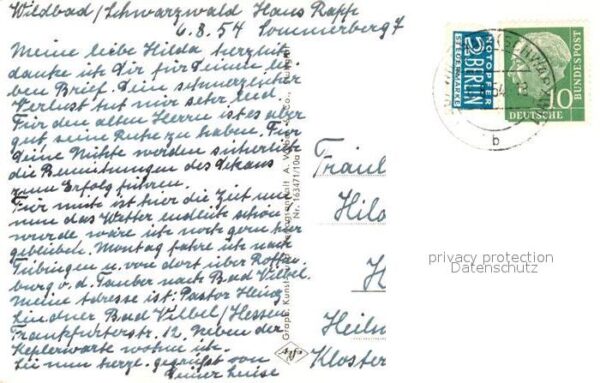 Wildbad/Schwarzwald Haus Rapp
6.8.54 Sommerberg 7
Meine liebe Hilda herzlich
danke ich Dir für Deine lie-
ben Brief. Dein schmerzlicher
Verlust tut mir sehr leid.
Für den alten Herrn ist es aber
gut seine Ruhe zu haben. Für
Deine Nichte werden sicherlich
die Bemühungen des Dekans
zum Erfolg führen.
Für mich ist hier die Zeit um
nun das Wetter endlich schön
wurde wäre ich noch gern hier
geblieben. Montag fahre ich nach
Tübingen u. von dort über Rothen-
burg o. d. Tauber nach Bad Vilbel.
Meine Adresse ist: Pastor Heinz
Lindner Bad Vilbel/Hessen
Frankfurterstr. 12. Neben der
Keplerwarte wohne ich.
Sei nun herzl. gegrüßt von
Deiner Luise
Graph. Kunst- A. W & Co., Stuttgart
Nr. 163471/10a
Agfa
Fräul
Hild
H
Heil
Kloster
NOTOPFER
2 BERLIN
STEUERMARKE
DEUTSCHE BUNDESPOST
10
b
privacy protection
Datenschutz